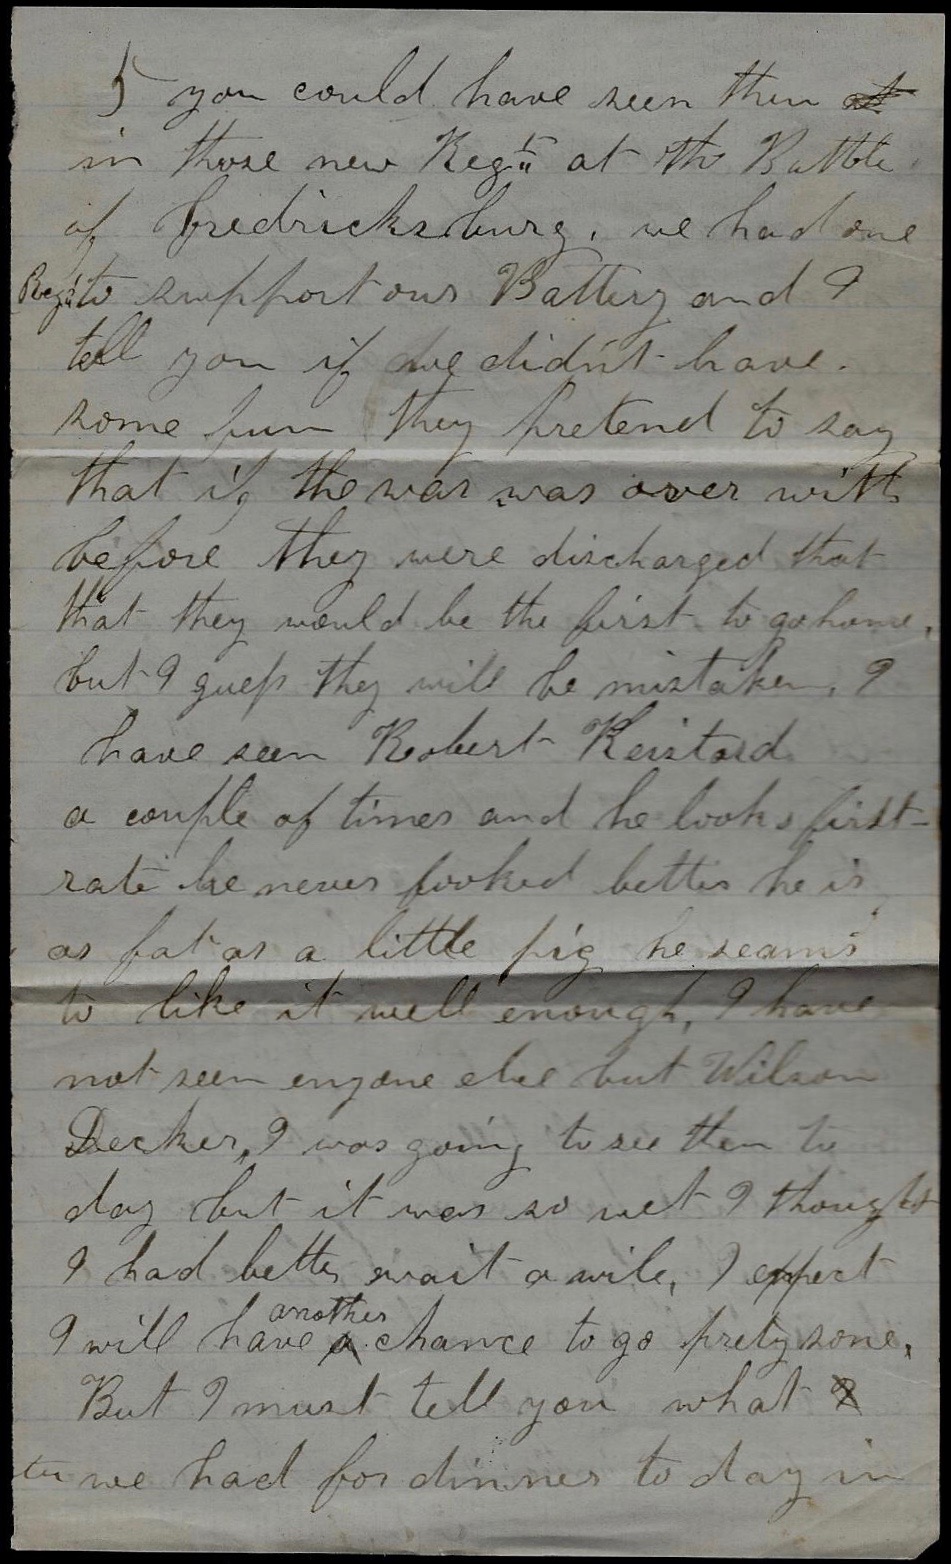 5 you could have seen them at
in those new Regts at the Battle
of Fredricksburg. we had one
Regt to support our Battery and I
tell you if we didn't have.
some fun they pretend to say
that if the war was over with
before they were discharged that
that they would be the first to go home,
but I guess they will be mistaken, I
have seen Robert
a couple of times and he looks first-
rate he never looked better he is
as fat as a little pig he seams
to like it well enough, I have
not seen enyone else but Wilson
Decker, I was going to see them to
day but it was so wet I thought
I had better wait a wile, I expect
I will have a another chance to go prety sone,
But I must tell you what I
we had for dinner to day in